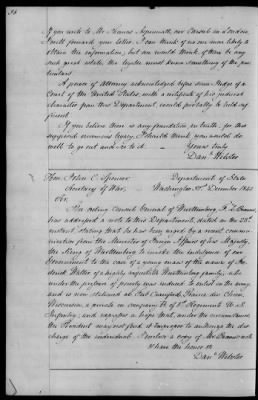 If you write to Mr Thomas Aspinwall, our Consul in London,
I will forward your letter. I can think of no one more likely to
obtain the information, but we would think if there be any
such great estate the legatee must know something of the par-
ticulars.
A power of Attorney acknowledged before some Judge of a
Court of the United States, with a certificate of his judicial
character from this Department, would probably be held suf-
ficient.
If you believe there is any foundation in truth, for this
supposed enormous legacy, I should think you would do
well to go out and see to it. Yours truly
Danl Webster
Hon. John C. Spencer, Department of State
Secretary of War. Washington 31st December 1842
Sir.
The acting Consul General of Wurttemberg
has addressed a note to this Department, dated on the 28th
instant stating that he has been urged by a recent commu-
nication from the Minister of Foreign Affairs of his Majesty,
the King of Wurttemberg to invoke the indulgence of our
Government to the case of a young man of the name of
Walter of a highly respectable Wurttemberg family, who
under the pressure of poverty was induced to enlist in the army,
and is now stationed at Fort Crawford, Prairie du Chien,
Wisconsin, a private in company of 5th Regiment U.S.
Infantry, and expresses a hope that, under the circumstances
the President may not find it improper to authorize the dis-
charge of the individual. I enclose a copy of Mr note
I have the honor &c
Danl Webster